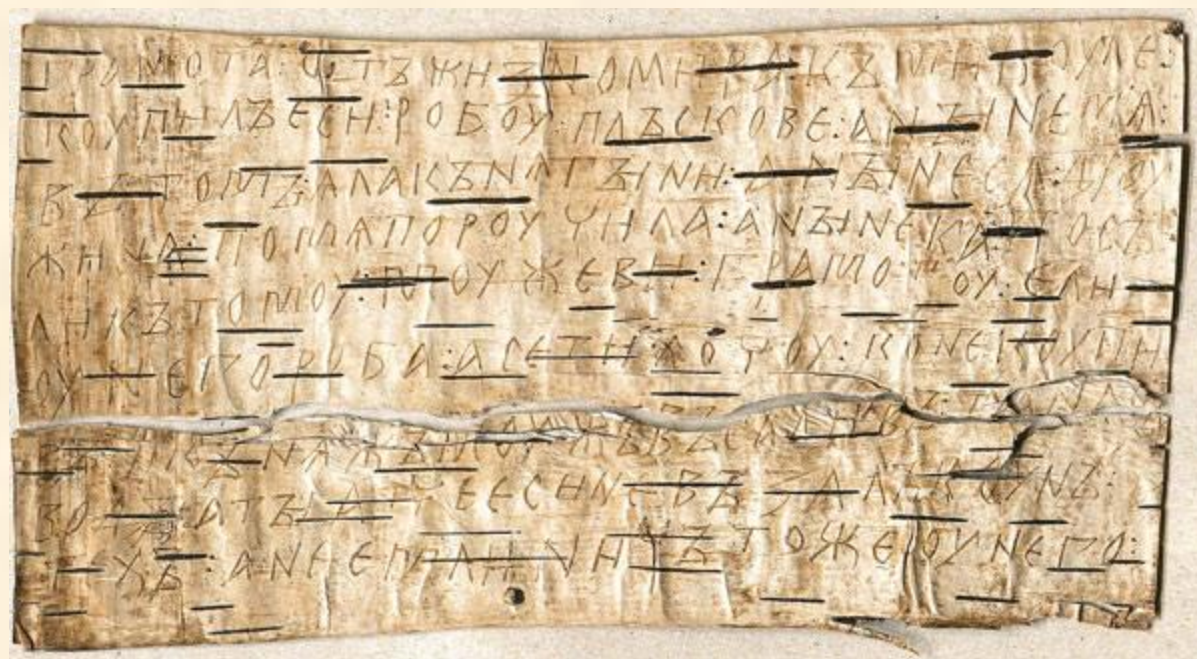 грамота:ѡтъжизномира:къмикоуле:
коупилъеси:робоу:плъскове:анъінемѧ:
въ томъ:ѧлакънѧгъіни:анъінесѧдроу
жина:помѧпороучила:анъінека:посъ
ликътомоу:моужеви:грамотоу:ели
оу него роба:асетихочоу:конекоупи
въ:икънѧжъмоужъвъсадивъ:тана
съводъі:атъіатчеесиневъзалъкоунъ:
техъ:анеемлиничътожеоунего: